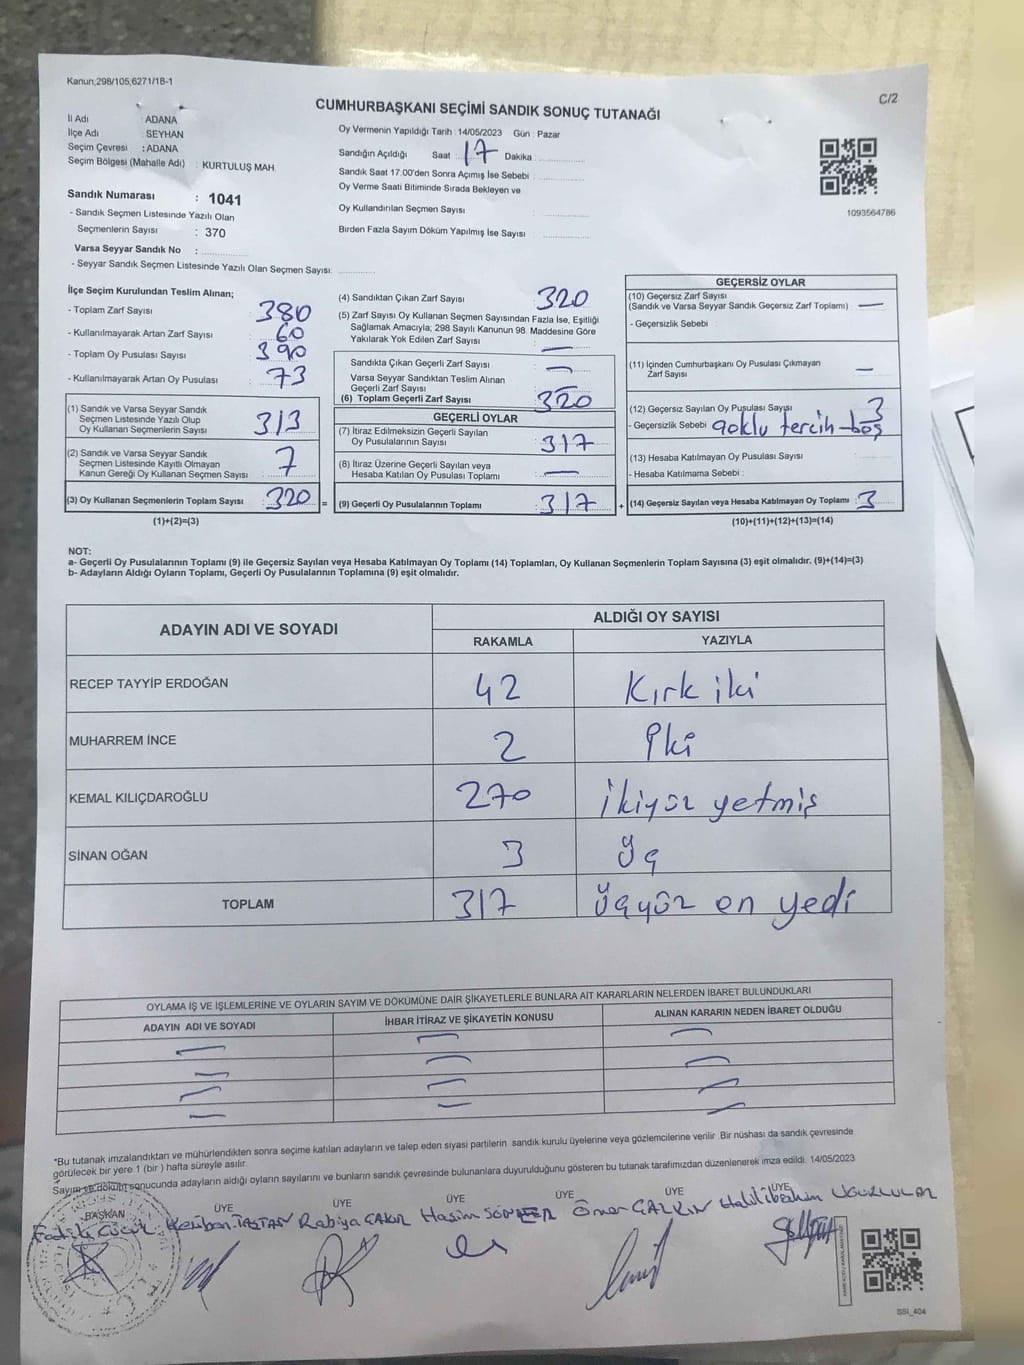 Kanun;298/105;6271/18-1
C/2
CUMHURBAŞKANI SEÇİMİ SANDIK SONUÇ TUTANAĞI
İl Adı : ADANA
İlçe Adı : SEYHAN
Seçim Çevresi : ADANA
Seçim Bölgesi (Mahalle Adı) : KURTULUŞ MAH
Sandık Numarası : 1041
- Sandık Seçmen Listesinde Yazılı Olan
Seçmenlerin Sayısı : 370
Varsa Seyyar Sandık No :
- Seyyar Sandık Seçmen Listesinde Yazılı Olan Seçmen Sayısı:
Oy Vermenin Yapıldığı Tarih : 14/05/2023 Gün : Pazar
Sandığın Açıldığı Saat : 17 Dakika :
Sandık Saat 17.00'den Sonra Açımış İse Sebebi :
Oy Verme Saati Bitiminde Sırada Bekleyen ve
Oy Kullandırılan Seçmen Sayısı :
Birden Fazla Sayım Döküm Yapılmış İse Sayısı :
1093564786
İlçe Seçim Kurulundan Teslim Alınan;
- Toplam Zarf Sayısı : 380
- Kullanılmayarak Artan Zarf Sayısı : 60
- Toplam Oy Pusulası Sayısı : 390
- Kullanılmayarak Artan Oy Pusulası : 73
(1) Sandık ve Varsa Seyyar Sandık
Seçmen Listesinde Yazılı Olup
Oy Kullanan Seçmenlerin Sayısı : 313
(2) Sandık ve Varsa Seyyar Sandık
Seçmen Listesinde Kayıtlı Olmayan
Kanun Gereği Oy Kullanan Seçmen Sayısı : 7
(3) Oy Kullanan Seçmenlerin Toplam Sayısı : 320 =
(1)+(2)=(3)
(4) Sandıktan Çıkan Zarf Sayısı : 320
(5) Zarf Sayısı Oy Kullanan Seçmen Sayısından Fazla İse, Eşitliği
Sağlamak Amacıyla; 298 Sayılı Kanunun 98. Maddesine Göre
Yakılarak Yok Edilen Zarf Sayısı : —
Sandıkta Çıkan Geçerli Zarf Sayısı : —
Varsa Seyyar Sandıktan Teslim Alınan
Geçerli Zarf Sayısı : —
(6) Toplam Geçerli Zarf Sayısı : 320
GEÇERLİ OYLAR
(7) İtiraz Edilmeksizin Geçerli Sayılan
Oy Pusulalarının Sayısı : 317
(8) İtiraz Üzerine Geçerli Sayılan veya
Hesaba Katılan Oy Pusulası Toplamı : —
(9) Geçerli Oy Pusulalarının Toplamı : 317 +
GEÇERSİZ OYLAR
(10) Geçersiz Zarf Sayısı
(Sandık ve Varsa Seyyar Sandık Geçersiz Zarf Toplamı) : —
- Geçersizlik Sebebi
(11) İçinden Cumhurbaşkanı Oy Pusulası Çıkmayan
Zarf Sayısı : —
(12) Geçersiz Sayılan Oy Pusulası Sayısı : 3
- Geçersizlik Sebebi çoklu tercih-boş
(13) Hesaba Katılmayan Oy Pusulası Sayısı :
- Hesaba Katılmama Sebebi :
(14) Geçersiz Sayılan veya Hesaba Katılmayan Oy Toplamı : 3
(10)+(11)+(12)+(13)=(14)
NOT:
a- Geçerli Oy Pusulalarının Toplamı (9) ile Geçersiz Sayılan veya Hesaba Katılmayan Oy Toplamı (14) Toplamları, Oy Kullanan Seçmenlerin Toplam Sayısına (3) eşit olmalıdır. (9)+(14)=(3)
b- Adayların Aldığı Oyların Toplamı, Geçerli Oy Pusulalarının Toplamına (9) eşit olmalıdır.
ADAYIN ADI VE SOYADI
ALDIĞI OY SAYISI
RAKAMLA YAZIYLA
RECEP TAYYİP ERDOĞAN 42 Kırk iki
MUHARREM İNCE 2 İki
KEMAL KILIÇDAROĞLU 270 ikiyüz yetmiş
SİNAN OĞAN 3 Üç
TOPLAM 317 Üçyüz on yedi
OYLAMA İŞ VE İŞLEMLERİNE VE OYLARIN SAYIM VE DÖKÜMÜNE DAİR ŞİKAYETLERLE BUNLARA AİT KARARLARIN NELERDEN İBARET BULUNDUKLARI
ADAYIN ADI VE SOYADI İHBAR İTİRAZ VE ŞİKAYETİN KONUSU ALINAN KARARIN NEDEN İBARET OLDUĞU
— — —
— — —
— — —
— — —
*Bu tutanak imzalandıktan ve mühürlendikten sonra seçime katılan adayların ve talep eden siyasi partilerin sandık kurulu üyelerine veya gözlemcilerine verilir .Bir nüshası da sandık çevresinde
görülecek bir yere 1 (bir ) hafta süreyle asılır.
Sayım ve döküm sonucunda adayların aldığı oyların sayılarını ve bunların sandık çevresinde bulunanlara duyurulduğunu gösteren bu tutanak tarafımızdan düzenlenerek imza edildi. 14/05/2023
BAŞKAN ÜYE ÜYE ÜYE ÜYE ÜYE ÜYE
Rabiya ÇAKIR Hasim Ömer ÇALKIN Halil İbrahim UĞURLULAR
SSI_404